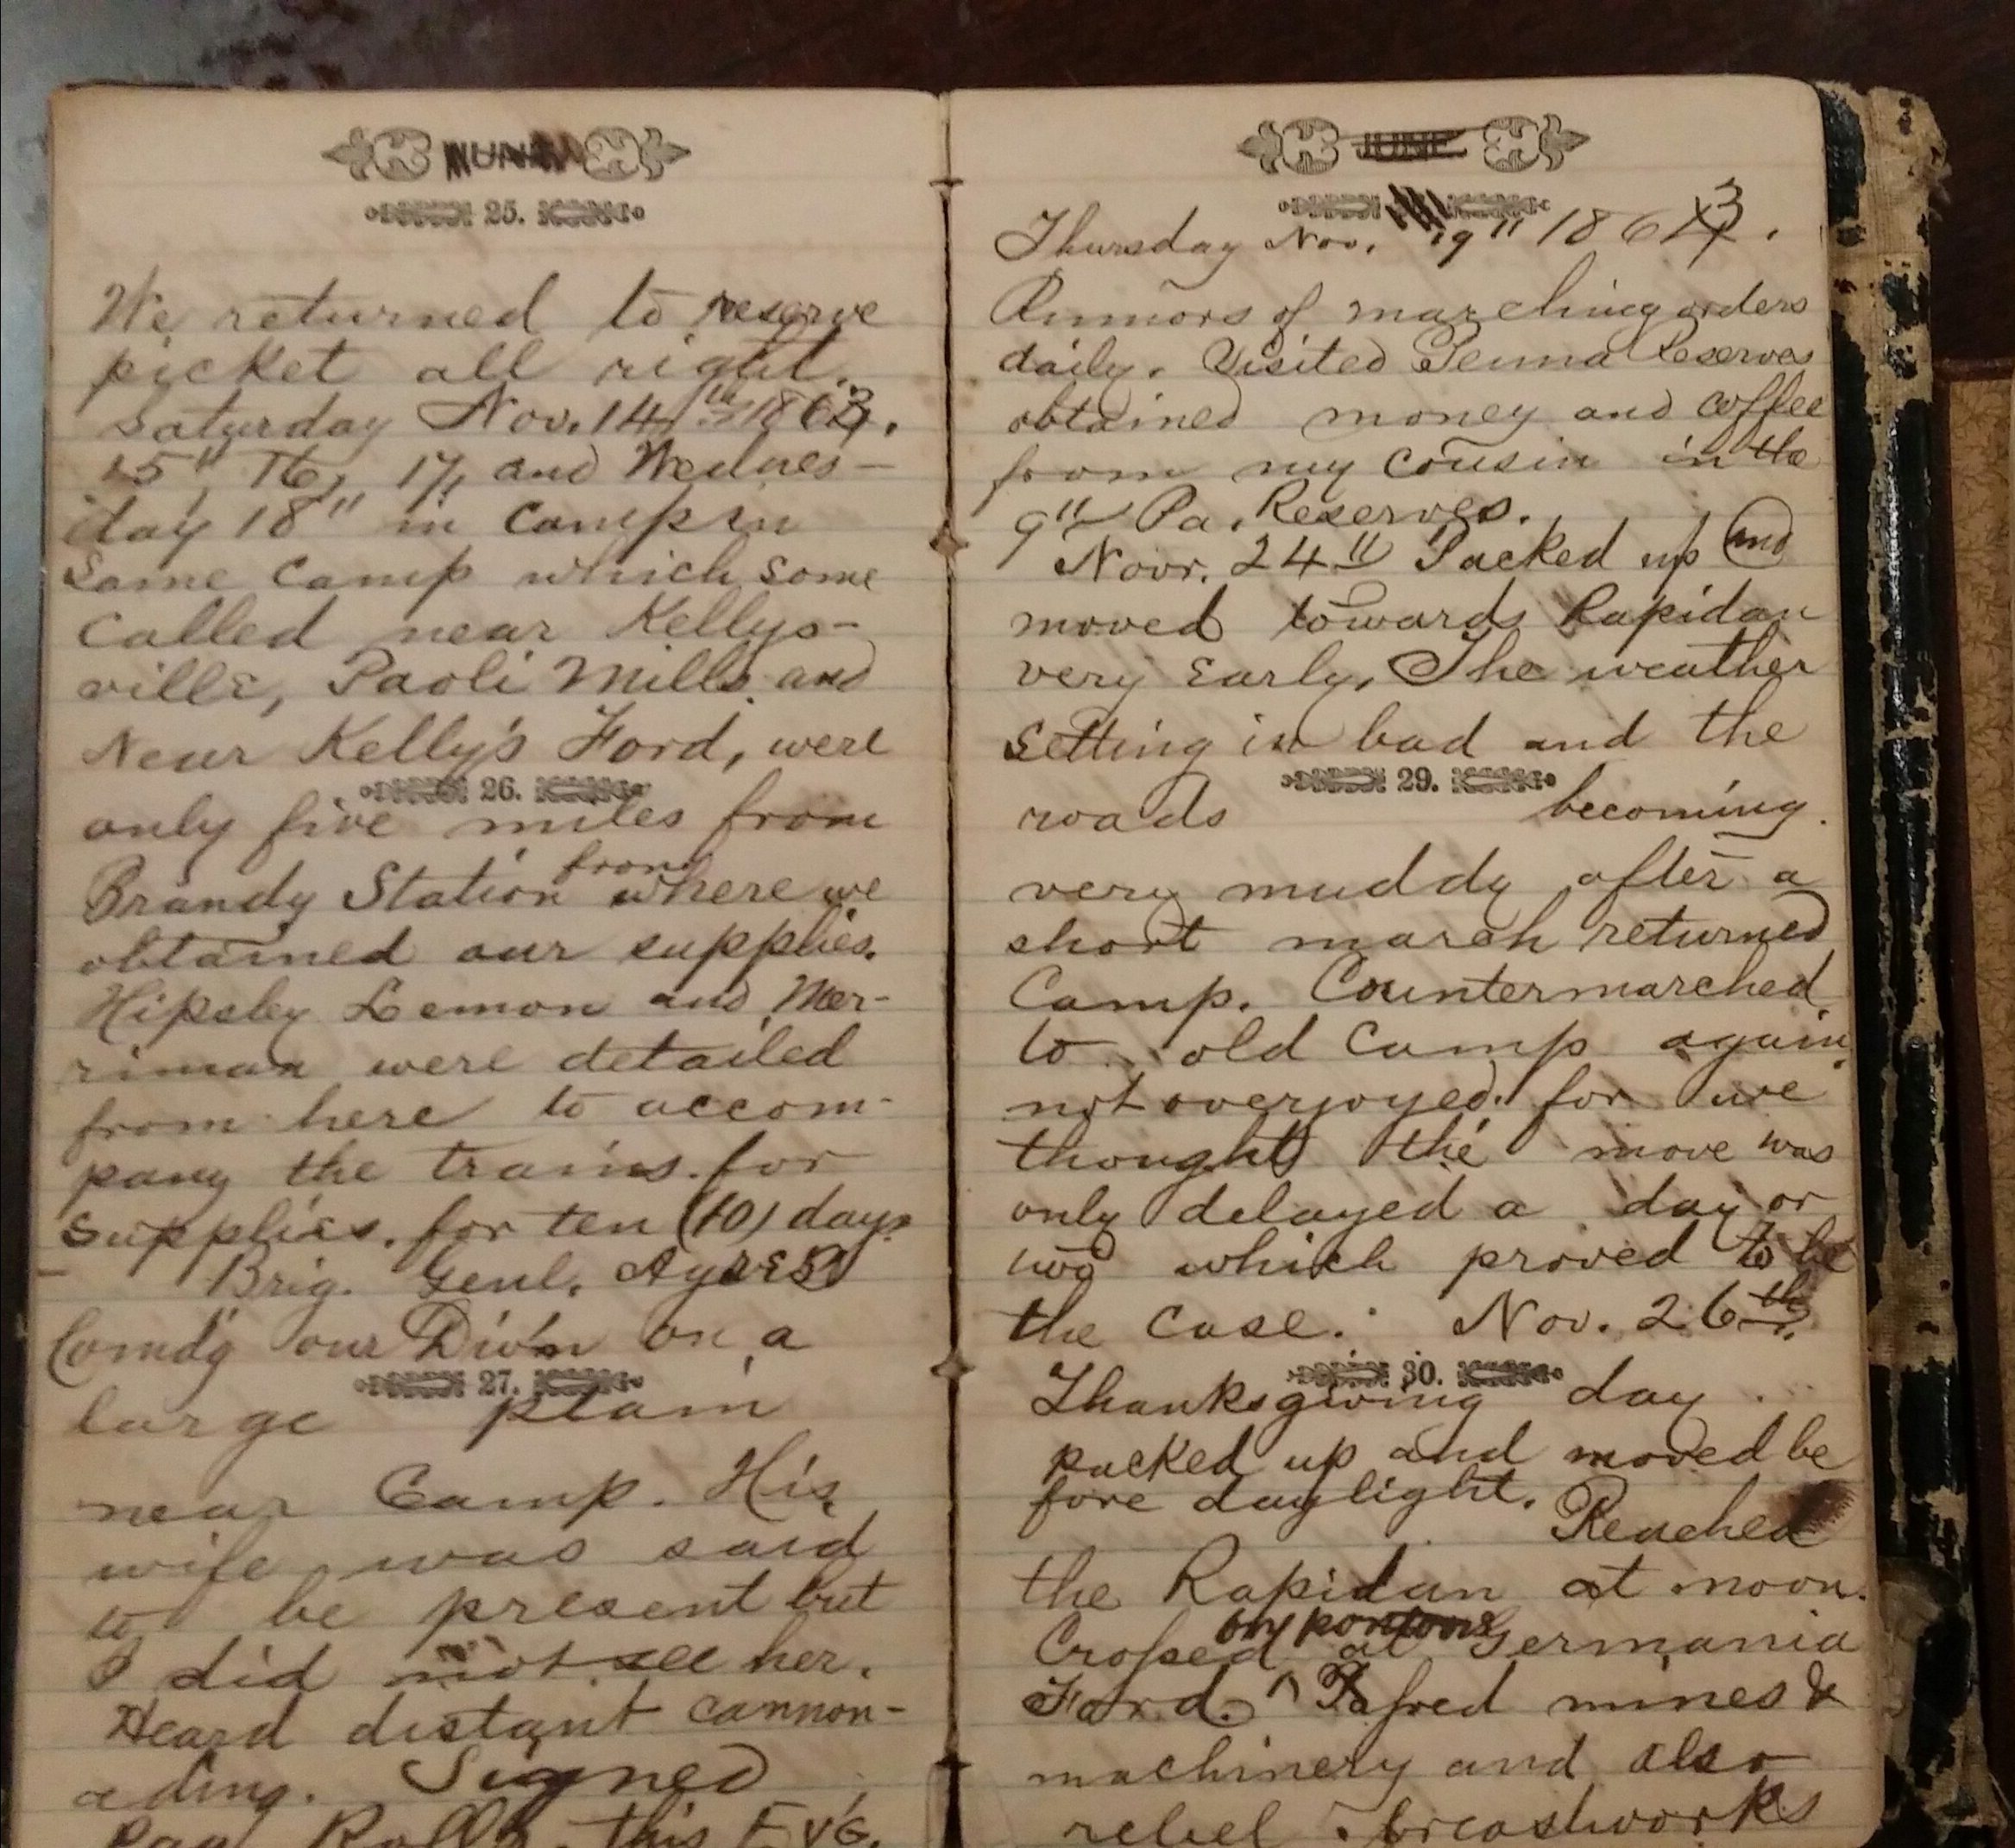 JUNE
25.
We returned to reserve
picket all right.
Saturday Nov. 14th 1863.
15" 16, 17, and Wednes-
day 18" in Camp in
Same Camp which some
Called near Kellys-
ville, Paoli Mills and
Near Kelly's Ford, were
26.
only five miles from
from
Brandy Station where we
obtained our supplies.
Hipsley Lemon and Mer-
riman were detailed
from here to accom-
pany the trains for
supplies. for ten (10) days
Brig. Genl. Ayres
Comd'g our Div'n on a
27.
large plain
near Camp. His
wife was said
to be present but
I did not see her.
Heard distant cannon-
ading. Signed
Pay Rolls this Ev'g.
JUNE
Thursday Nov. 19" 1863.
Rumors of marching orders
daily. Visited Penna Reserves
obtained money and coffee
from my cousin in the
9" Pa. Reserves.
Novr. 24" Packed up and
moved towards Rapidan
very early. The weather
setting in bad and the
29.
roads becoming.
very muddy after a
short march returned
Camp. Countermarched
to old Camp again.
not overjoyed. for we
thought the move was
only delayed a day or
two which proved to be
the case. Nov. 26th.
30.
Thanksgiving day.
packed up and moved be
fore daylight.
Reached
the Rapidan at noon.
on pontoons
Crossed at Germania
Ford. ^ Passed mines &
machinery and also
rebel breastworks